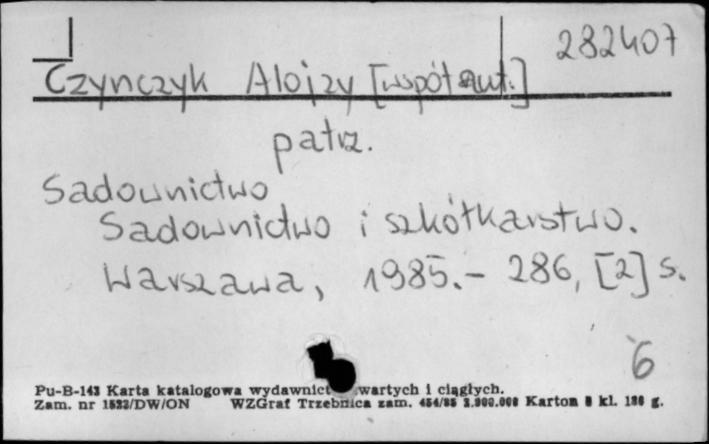 282407
Czynczyk Alojzy [współaut.]
patrz.
Sadownictwo
Sadownictwo i szkółkarstwo.
Warszawa, 1985.- 286, [2] s.
6
Pu-B-143 Karta katalogowa wydawnict wartych i ciągłych.
Zam. nr 1523/DW/ON WZGraf Trzebnica zam. 454/85 Karton kl. g.